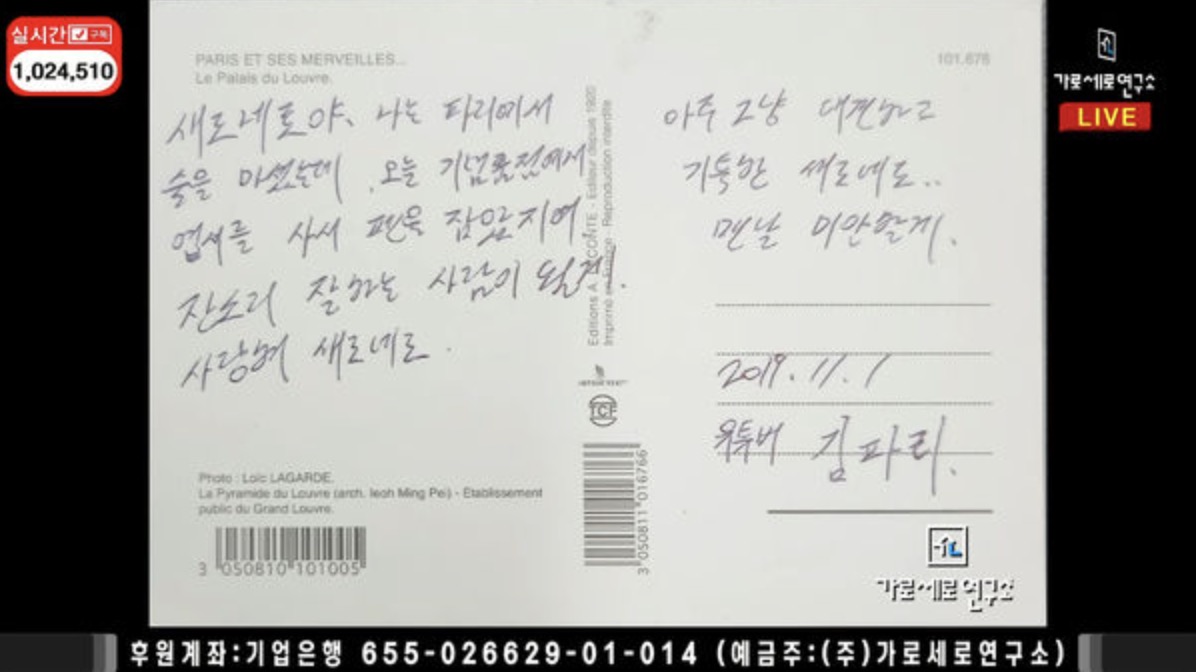 실시간 구독
1,024,510
가로세로연구소
LIVE
PARIS ET SES MERVEILLES...
Le Palais du Louvre.
101.678
새로네로야. 나는 파리에서
술을 마셨는데 . 오늘 기념품전에게
엽서를 사서 펜을 잡았지여.
잔소리 잘하는 사람이 될게.
사랑해 새로네로.
Editions A. LECONTE - Editeur depuis 1920
Imprimé en France - Reproduction interdite
TCF
3 050811 016766
Photo : Loïc LAGARDE.
La Pyramide du Louvre (arch. Ieoh Ming Pei) - Etablissement
public du Grand Louvre.
3 050810 101005
아주 그냥 대견하고
기특한 새로네로..
맨날 미안할게.
2019.11.1
유튜버 김파리.
가로세로연구소
후원계좌:기업은행 655-026629-01-014 (예금주:(주)가로세로연구소)